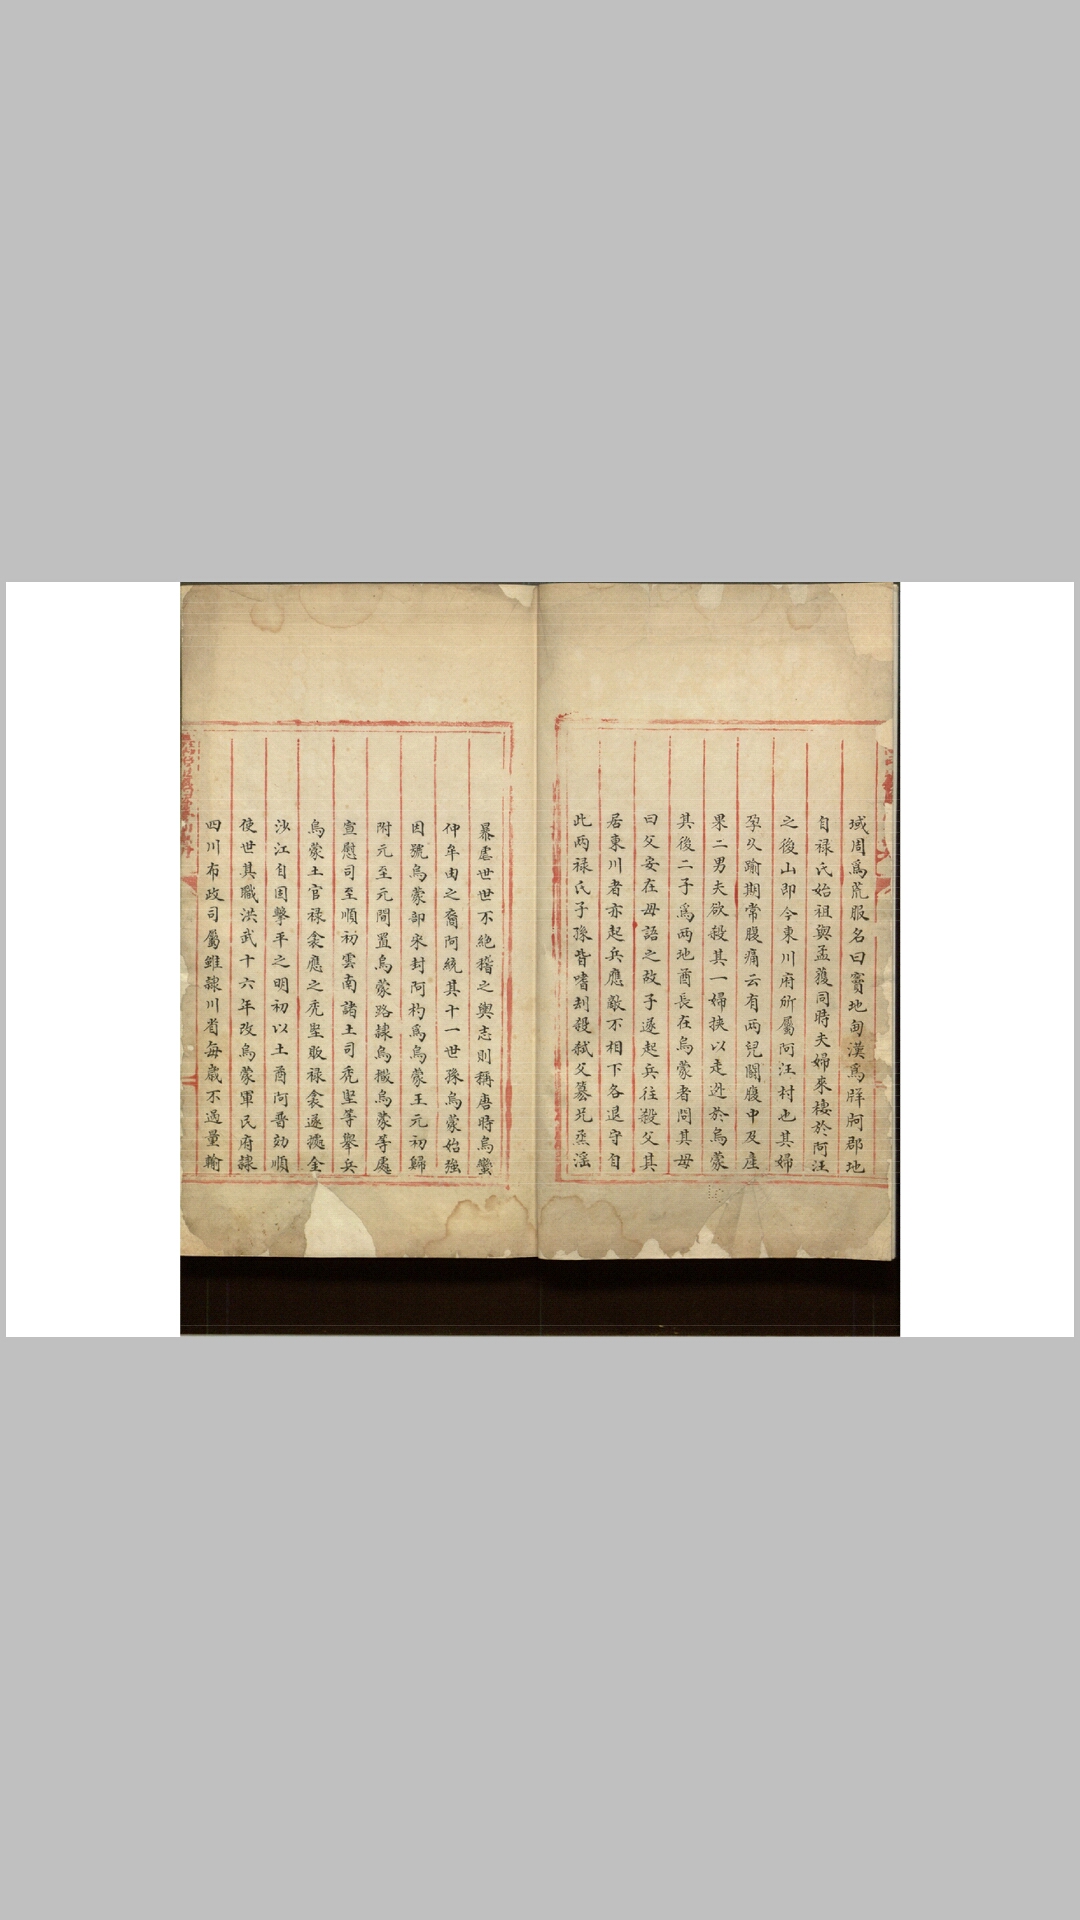 域周爲荒服名曰竇地甸漢爲牂牁郡地
自祿氏始祖與孟獲同時夫婦來棲於阿汪
之後山即今東川府所屬阿汪村也其婦
孕久踰期常腹痛云有兩兒鬭腹中及産
果二男夫欲殺其一婦挾以走迯於烏蒙
其後二子爲兩地酋長在烏蒙者問其母
曰父安在母語之故子遂起兵往殺父其
居東川者亦起兵應敵不相下各退守自
此兩祿氏子孫皆嗜刦殺弑父簒兄烝滛
暴虐世世不絶稽之輿志則稱唐時烏蠻
仲牟由之裔阿統其十一世孫烏蒙始強
因號烏蒙部宋封阿杓爲烏蒙王元初歸
附元至元間置烏蒙路隷烏撒烏蒙等處
宣慰司至順初雲南諸土司禿堅等舉兵
烏蒙土官祿余應之禿堅敗祿余遂擾金
沙江自固擊平之明初以土酋阿普効順
使世其職洪武十六年改烏蒙軍民府隷
四川布政司屬雖隷川省每歲不過量輸